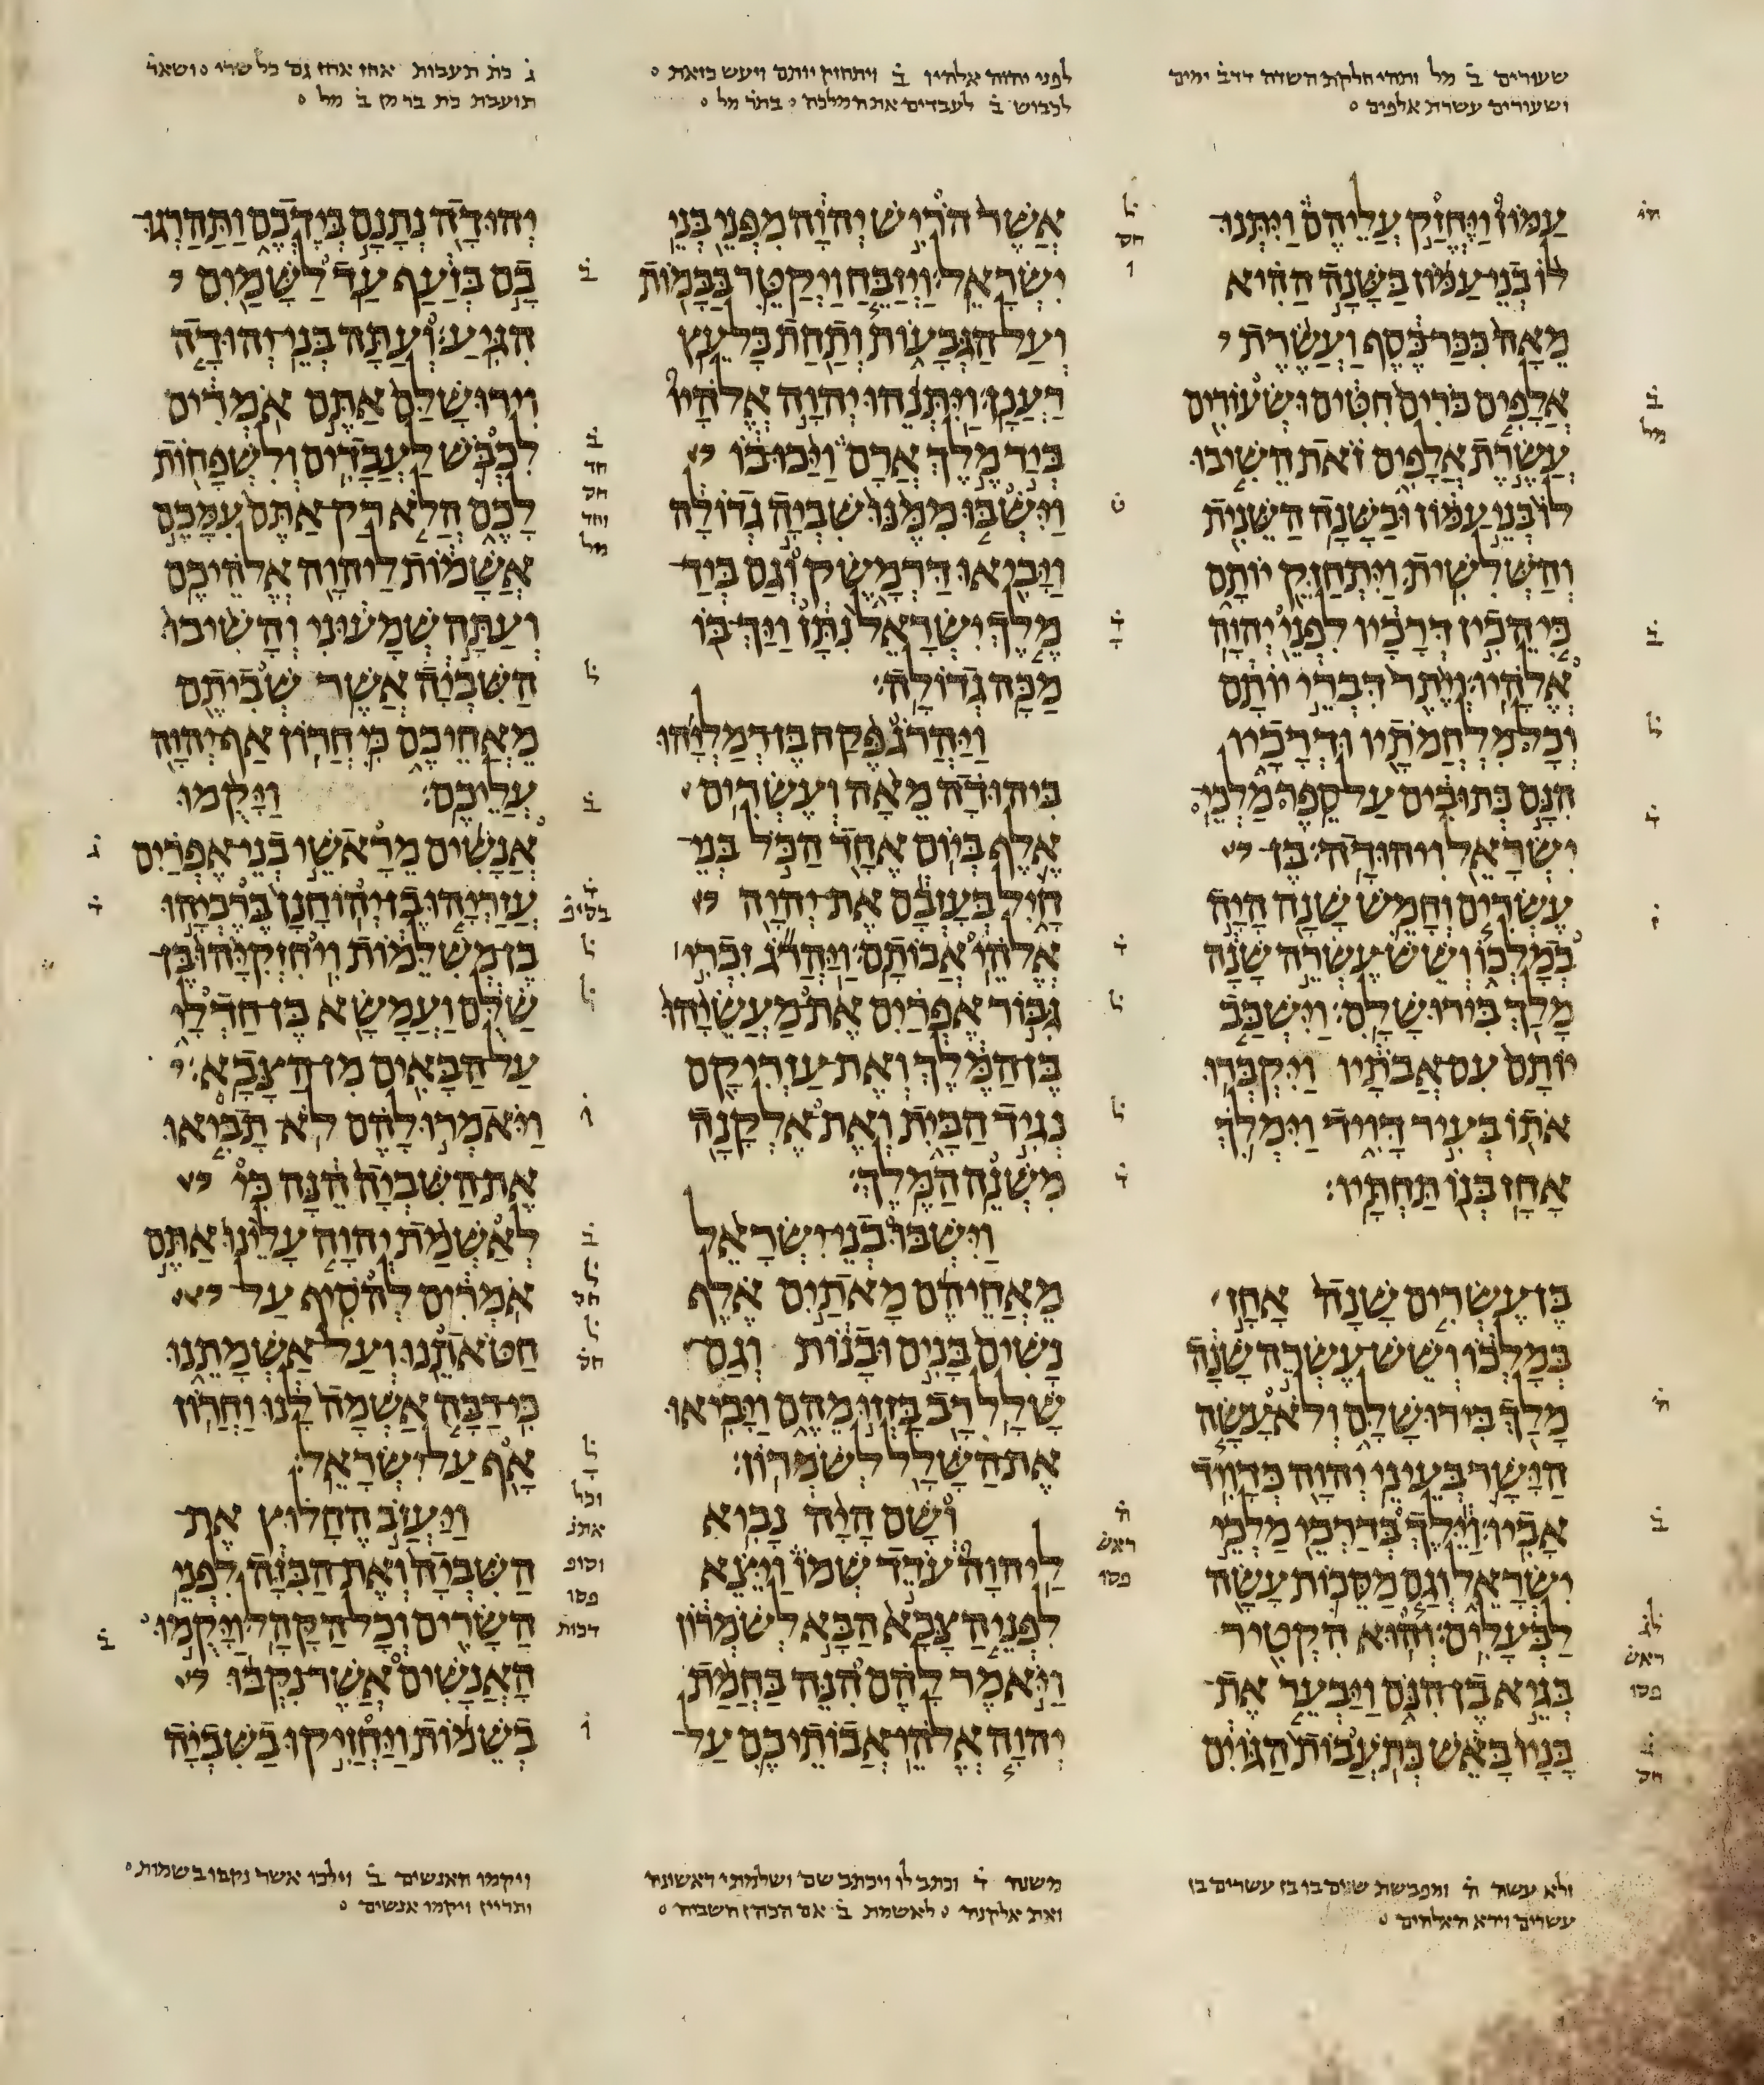 שעורים ב מל ותהי חלקת השדה דדב ימים
ושעורים עשרת אלפים
לפני יהוה אלהיו ב ויתחזק יותם ויעש כזאת
לכבוש ב לעבדים את המלכה בתר מל
ג כת תעבות אחז אחז גם כל שרי ושאר
תועבת כת בר מן ב מל
עמון ויחזק עליהם ויתנו
לו בני עמון בשנה ההיא
מאה ככר כסף ועשרת
אלפים כרים חטים ושעורים
עשרת אלפים זאת השיבו
לו בני עמון ובשנה השנית
והשלשית׃ ויתחזק יותם
כי הכין דרכיו לפני יהוה
אלהיו׃ ויתר דברי יותם
וכל מלחמתיו ודרכיו
הנם כתובים על ספר מלכי
ישראל ויהודה׃ בן
עשרים וחמש שנה היה
במלכו ושש עשרה שנה
מלך בירושלם׃ וישכב
יותם עם אבתיו ויקברו
אתו בעיר דויד וימלך
אחז בנו תחתיו׃
בן עשרים שנה אחז
במלכו ושש עשרה שנה
מלך בירושלם ולא עשה
הישר בעיני יהוה כדויד
אביו׃ וילך בדרכי מלכי
ישראל וגם מסכות עשה
לבעלים׃ והוא הקטיר
בגיא בן הנם ויבער את
בניו באש כתעבות הגוים
אשר הריש יהוה מפני בני
ישראל׃ ויזבח ויקטר בבמות
ועל הגבעות ותחת כל עץ
רענן׃ ויתנהו יהוה אלהיו
ביד מלך ארם ויכו בו
וישבו ממנו שביה גדולה
ויביאו דרמשק וגם ביד
מלך ישראל נתן ויך בו
מכה גדולה׃
ויהרג פקח בן רמליהו
ביהודה מאה ועשרים
אלף ביום אחד הכל בני
חיל בעזבם את יהוה
אלהי אבותם׃ ויהרג זכרי
גבור אפרים את מעשיהו
בן המלך ואת עזריקם
נגיד הבית ואת אלקנה
משנה המלך׃
וישבו בני ישראל
מאחיהם מאתים אלף
נשים בנים ובנות וגם
שלל רב בזזו מהם ויביאו
את השלל לשמרון׃
ושם היה נביא
ליהוה עדד שמו ויצא
לפני הצבא הבא לשמרון
ויאמר להם הנה בחמת
יהוה אלהי אבותיכם על
יהודה נתנם בידכם ותהרגו
בם בזעף עד לשמים
הגיע׃ ועתה בני יהודה
וירושלם אתם אמרים
לכבש לעבדים ולשפחות
לכם הלא רק אתם עמכם
אשמות ליהוה אלהיכם׃
ועתה שמעוני והשיבו
השביה אשר שביתם
מאחיכם כי חרון אף יהוה
עליכם׃ ויקמו
אנשים מראשי בני אפרים
עזריהו בן יהוחנן ברכיהו
בן משלמות ויחזקיהו בן
שלם ועמשא בן חדלי
על הבאים מן הצבא׃
ויאמרו להם לא תביאו
את השביה הנה כי
לאשמת יהוה עלינו אתם
אמרים להסיף על
חטאתנו ועל אשמתנו
כי רבה אשמה לנו וחרון
אף על ישראל׃
ויעזב החלוץ את
השביה ואת הבזה לפני
השרים וכל הקהל׃ ויקמו
האנשים אשר נקבו
בשמות ויחזיקו בשביה
ולא עשה ה ומפבשת
עשרים וירא האלהים
משנה ד וכתב לו ויכתב שם ושלמתי ראשונה
ואת אלקנה לאשמת ב אם הכהן המשיח
ויקמו האנשים ב וילכו אשר נקבו בשמות
ותריין ויקמו אנשים